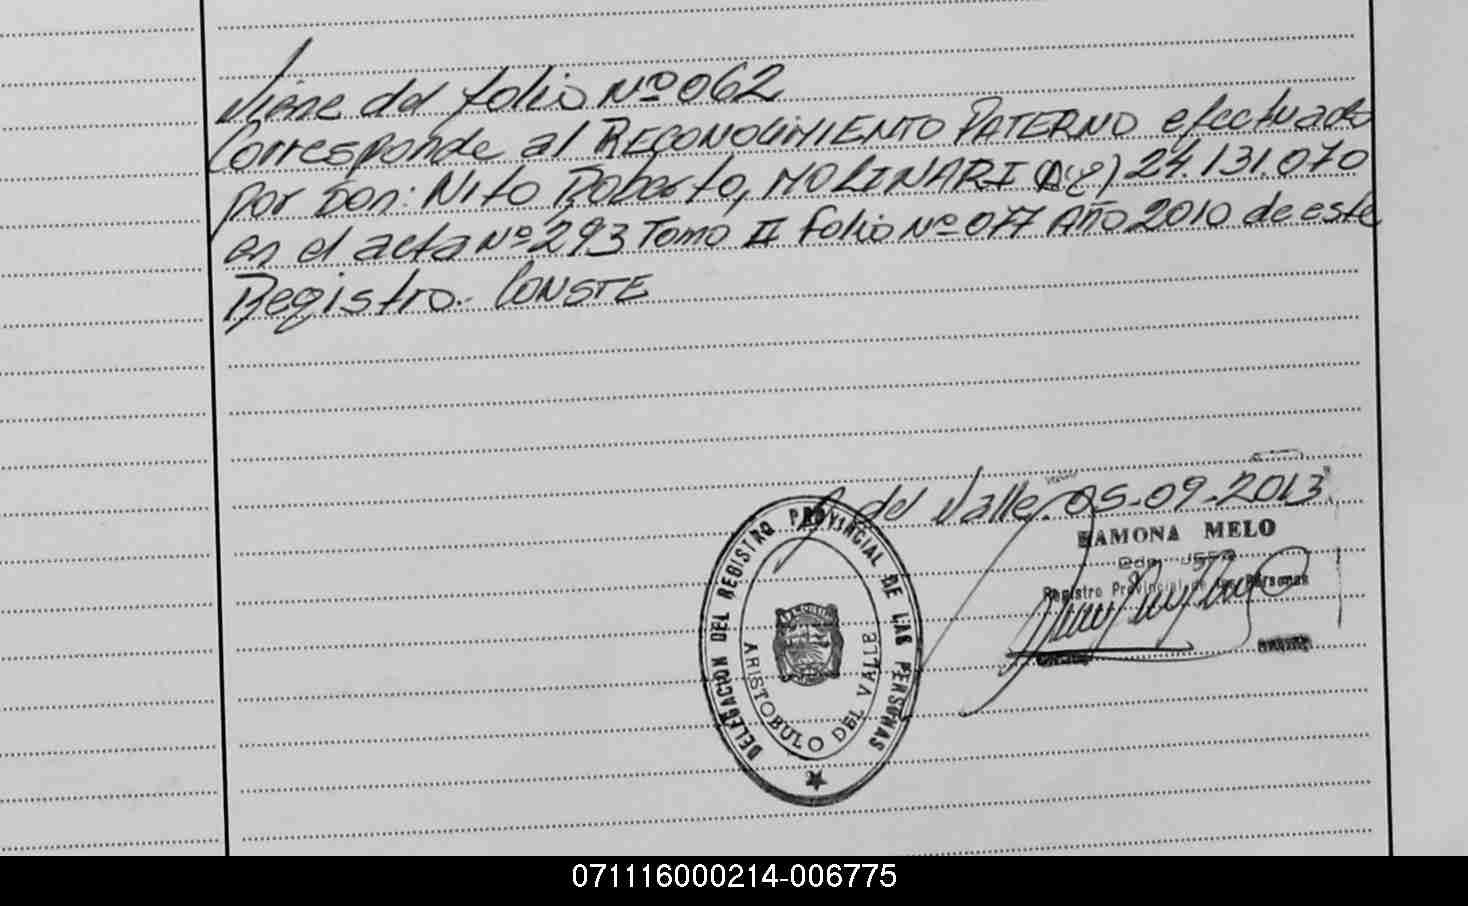 Viene del folio Nº 062
Corresponde al RECONOCIMIENTO PATERNO efectuado
por Don: Nito Roberto, MOLINARI 24.131.070
en el acta Nº 293 Tomo II folio Nº 077 Año 2010 de este
Registro.- CONSTE
del Valle. 05-09-2013
RAMONA MELO
Registro Provincial de las Personas
DELEGACION DEL REGISTRO PROVINCIAL DE LAS PERSONAS
ARISTOBULO DEL VALLE
071116000214-006775